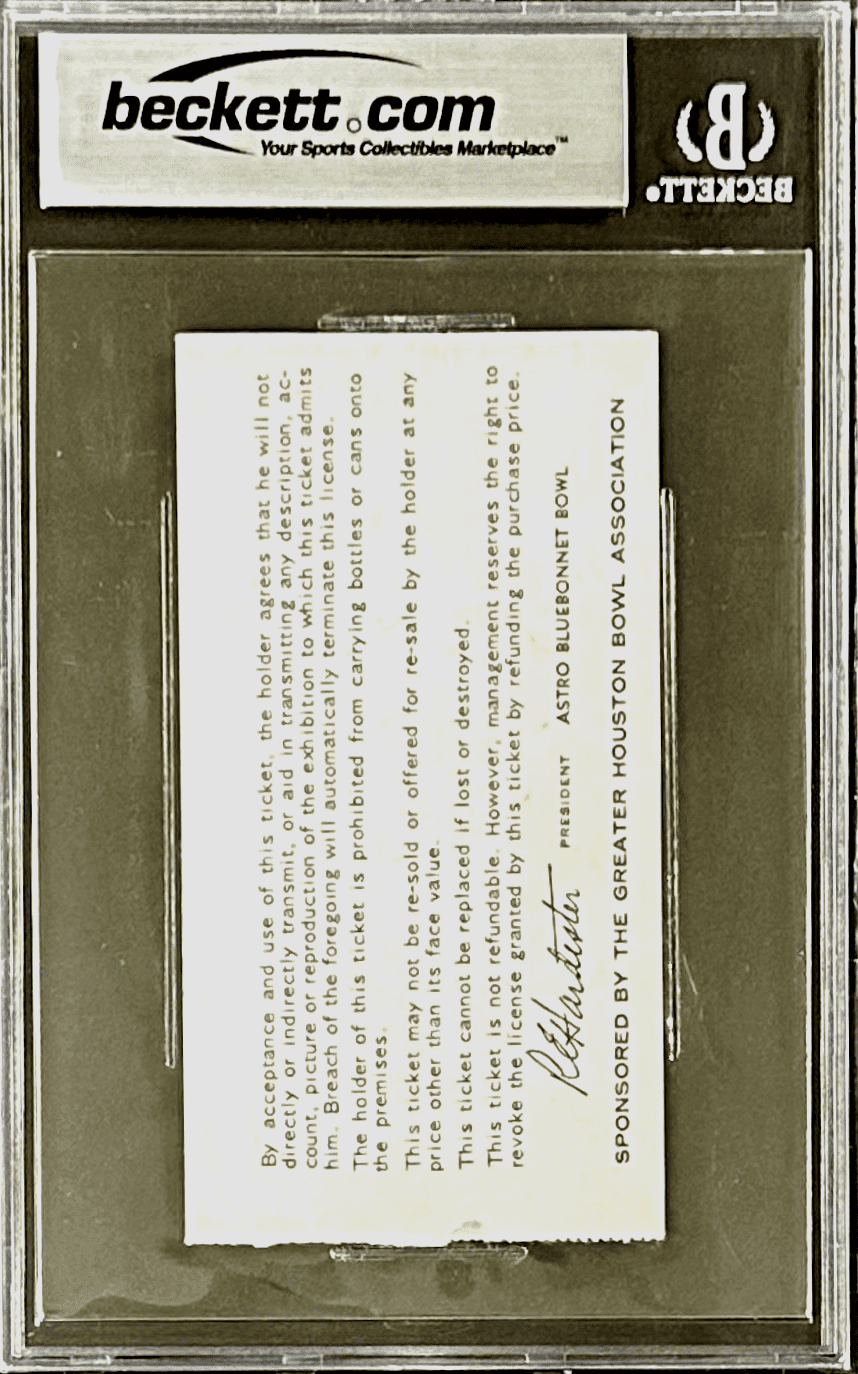 beckett.com
Your Sports Collectibles Marketplace™
BECKETT
By acceptance and use of this ticket, the holder agrees that he will not
directly or indirectly transmit, or aid in transmitting any description, ac-
count, picture or reproduction of the exhibition to which this ticket admits
him. Breach of the foregoing will automatically terminate this license.
The holder of this ticket is prohibited from carrying bottles or cans onto
the premises.
This ticket may not be re-sold or offered for re-sale by the holder at any
price other than its face value.
This ticket cannot be replaced if lost or destroyed.
This ticket is not refundable. However, management reserves the right to
revoke the license granted by this ticket by refunding the purchase price.
REHardester PRESIDENT ASTRO BLUEBONNET BOWL
SPONSORED BY THE GREATER HOUSTON BOWL ASSOCIATION